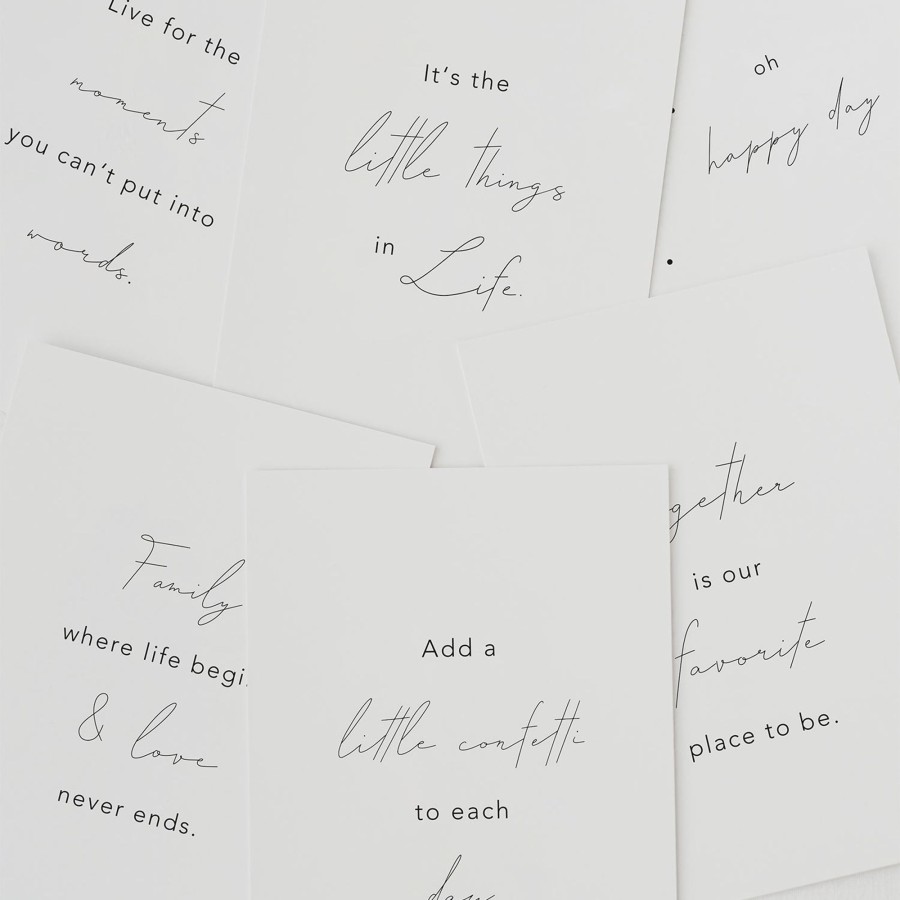 Live for the
moments
you can't put into
words.
It's the
little things
in Life.
oh
happy day
Family
where life begi
& love
never ends.
Add a
little confetti
to each
day
gether
is our
favorite
place to be.